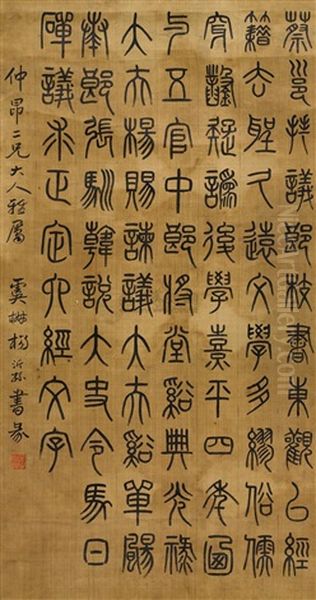 蔡邕拜議郎校書東觀以經
籍去聖久遠文學多繆俗儒
穿鑿疑誤後學熹平四年
与五官中郎將堂谿典光祿
大夫楊賜諫議大夫谿單颺
奏郎張馴韓說大史令馬日
磾議求正定六經文字
仲昂二兄大人雅屬 虞 楊沂孫書篆